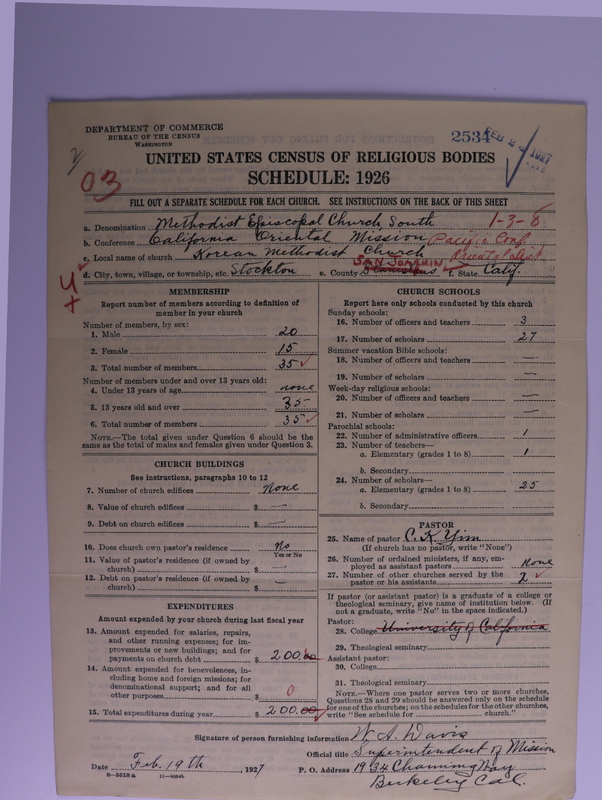 DEPARTMENT OF COMMERCE
BUREAU OF THE CENSUS
WASHINGTON
2534
FEB 2 1927
UNITED STATES CENSUS OF RELIGIOUS BODIES
SCHEDULE: 1926
03
FILL OUT A SEPARATE SCHEDULE FOR EACH CHURCH. SEE INSTRUCTIONS ON THE BACK OF THIS SHEET
a. Denomination Methodist Episcopal Church, South 1-3-8
b. Conference California Oriental Mission Pacific Conf.
c. Local name of church Korean Methodist Church Oriental Dist.
d. City, town, village, or township, etc. Stockton e. County SAN JOAQUIN Stanislaus f. State Calif.
MEMBERSHIP
Report number of members according to definition of
member in your church
Number of members, by sex:
1. Male 20
2. Female 15
3. Total number of members 35
Number of members under and over 13 years old:
4. Under 13 years of age none
5. 13 years old and over 35
6. Total number of members 35
NOTE.—The total given under Question 6 should be
same as the total of males and females given under Question 3.
CHURCH BUILDINGS
See instructions, paragraphs 10 to 12
7. Number of church edifices None
8. Value of church edifices $ —
9. Debt on church edifices $ —
10. Does church own pastor's residence No
Yes or No
11. Value of pastor's residence (if owned by
church) $ —
12. Debt on pastor's residence (if owned by
church) $ —
EXPENDITURES
Amount expended by your church during last fiscal year
13. Amount expended for salaries, repairs,
and other running expenses; for im-
provements or new buildings; and for
payments on church debt $ 200.00
14. Amount expended for benevolences, in-
cluding home and foreign missions; for
denominational support; and for all
other purposes $ 0
15. Total expenditures during year $ 200.00
CHURCH SCHOOLS
Report here only schools conducted by this church
Sunday schools:
16. Number of officers and teachers 3
17. Number of scholars 27
Summer vacation Bible schools:
18. Number of officers and teachers —
19. Number of scholars —
Week-day religious schools:
20. Number of officers and teachers —
21. Number of scholars —
Parochial schools:
22. Number of administrative officers 1
23. Number of teachers—
a. Elementary (grades 1 to 8) 1
b. Secondary
24. Number of scholars—
a. Elementary (grades 1 to 8) 25
b. Secondary
PASTOR
25. Name of pastor C. K. Yim
(If church has no pastor, write "None")
26. Number of ordained ministers, if any, em-
ployed as assistant pastors none
27. Number of other churches served by the
pastor or his assistants 2
If pastor (or assistant pastor) is a graduate of a college or
theological seminary, give name of institution below. (If
not a graduate, write "No" in the space indicated.)
Pastor:
28. College University of California
29. Theological seminary
Assistant pastor:
30. College
31. Theological seminary
NOTE.—Where one pastor serves two or more churches,
Questions 28 and 29 should be answered only on the schedule
for one of the churches; on the schedules for the other churches,
write "See schedule for church."
Signature of person furnishing information W. A. Davis
Official title Superintendent of Mission
Date Feb. 19th, 1927 P. O. Address 1934 Channing Way
Berkeley Cal.
8-5518 a